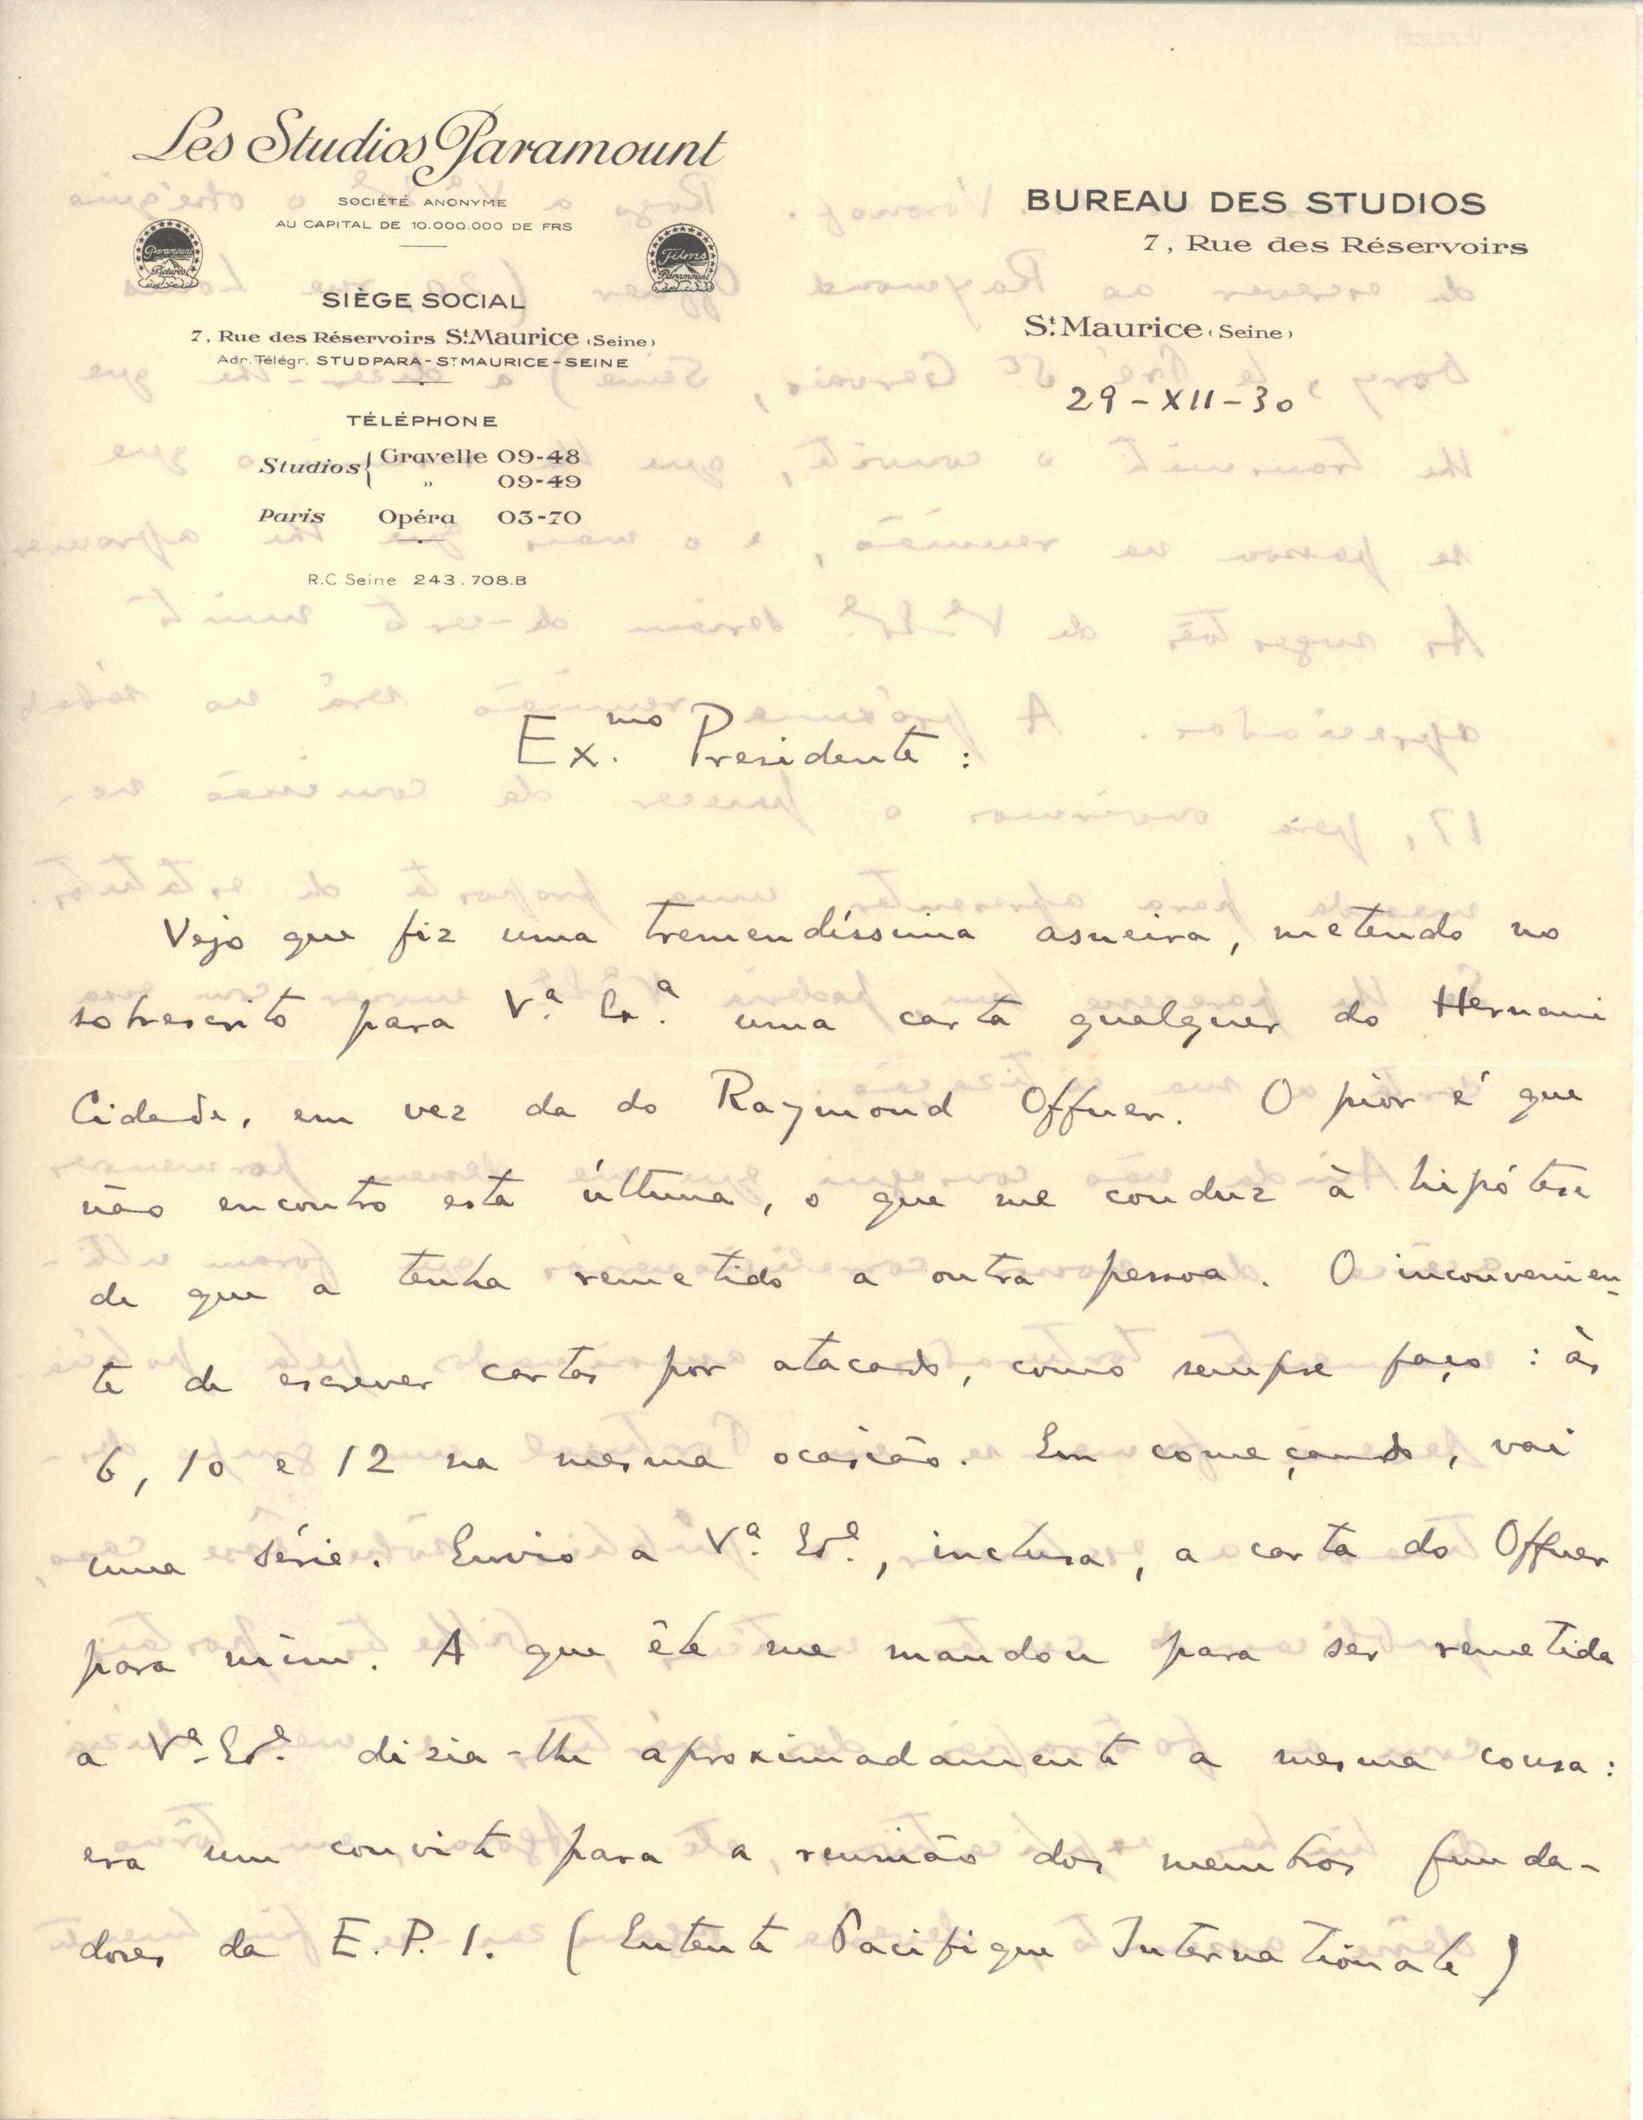 Les Studios Paramount
SOCIÉTÉ ANONYME
AU CAPITAL DE 10.000.000 DE FRS
Paramount Pictures
Films Paramount
SIÈGE SOCIAL
7, Rue des Réservoirs St. Maurice (Seine)
Adr. Télégr. STUDPARA-ST MAURICE-SEINE
TÉLÉPHONE
Studios { Gravelle 09-48
" 09-49
Paris Opéra 03-70
R.C Seine 243.708.B
BUREAU DES STUDIOS
7, Rue des Réservoirs
St. Maurice (Seine)
29-XII-30
Ex.mo Presidente:
Vejo que fiz uma tremendíssima asneira, metendo no
sobrescrito para V.ª Ex.ª uma carta qualquer do Hernani
Cidade, em vez da do Raymond Offner. O pior é que
não encontro esta última, o que me conduz à hipótese
de que a tenha remetido a outra pessoa. O inconvenien-
te de escrever cartas por atacado, como sempre faço: às
6, 10 e 12 na mesma ocasião. Em começando, vai
uma série. Envio a V.ª Ex.ª, inclusa, a carta do Offner
para mim. A que êle me mandou para ser remetida
a V.ª Ex.ª dizia-lhe àproximadamente a mesma cousa:
era um convite para a reunião dos membros funda-
dores da E.P.I. (Entente Pacifique Internationale)